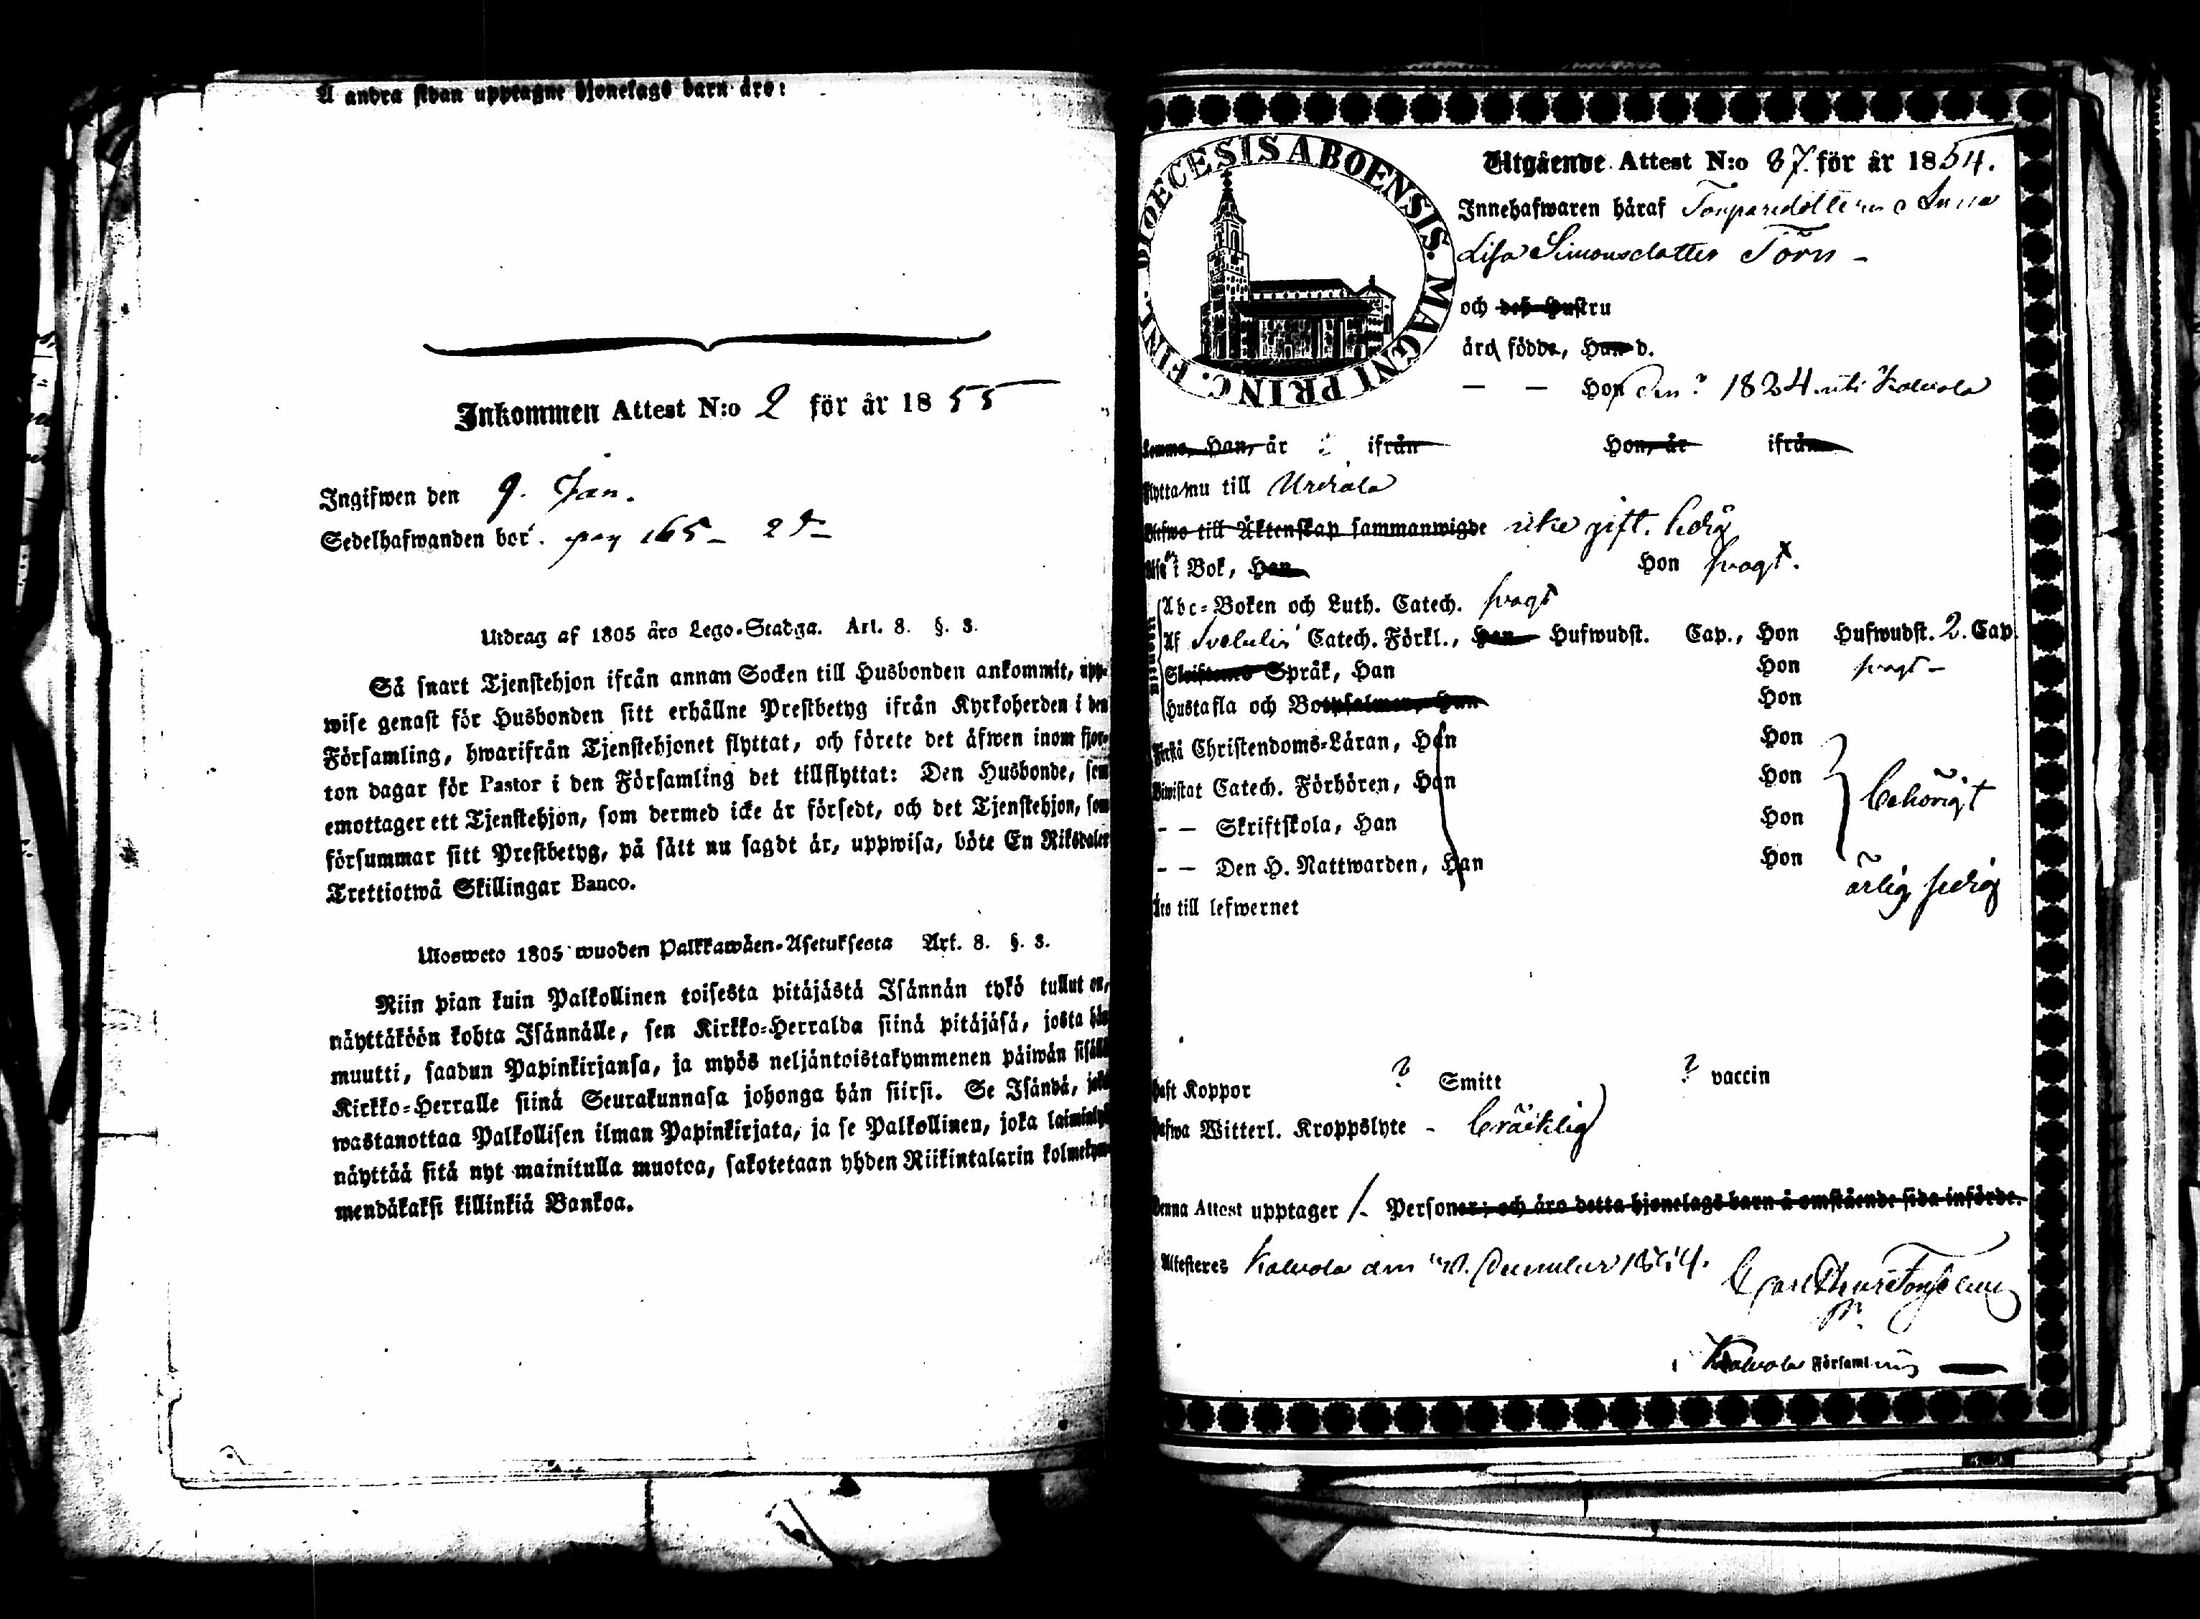 Å andra sidan upptagne hjonelags barn äro:
Inkommen Attest N:o 2 för år 1855
Ingifwen den 9. Jan.
Sedelhafwanden bor. pag 165
Utdrag af 1805 års Lego-Stadga. Art. 8. §. 3.
Så snart Tjenstehjon ifrån annan Socken till Husbonden ankommit, upp-
wise genast för Husbonden sitt erhållne Prestbetyg ifrån Kyrkoherden i den
Församling, hwarifrån Tjenstehjonet flyttat, och förete det äfwen inom fjor-
ton dagar för Pastor i den Församling det tillflyttat: Den Husbonde, som
emottager ett Tjenstehjon, som dermed icke är försedt, och det Tjenstehjon, som
försummar sitt Prestbetyg, på sätt nu sagdt är, uppwisa, böte En Riksdaler
Trettiotwå Skillingar Banco.
Ulosweto 1805 wuoden Palkkawäen-Asetuksesta Art. 8. §. 3.
Niin pian kuin Palkollinen toisesta pitäjästä Isännän tykö tullut on,
näyttäköön kohta Isännälle, sen Kirkko-Herralda siinä pitäjäsä, josta hän
muutti, saadun Papinkirjansa, ja myös neljäntoistakymmenen päiwän sisällä
Kirkko-Herralle siinä Seurakunnasa johonga hän siirsi. Se Isändä, joka
wastanottaa Palkollisen ilman Papinkirjata, ja se Palkollinen, joka laiminlyö
näyttää sitä nyt mainitulla muotoa, sakotetaan yhden Riikintalarin kolmekym-
mendäkaksi killinkiä Bankoa.
DIOECESIS ABOENSIS. MAGNI PRINC. FINL.
Utgående Attest N:o 87. för år 1854.
Innehafwaren häraf Torparedottren Anna
Lisa Simonsdotter Törn -
och deß Hustru
äro födde, Han d.
— — Hon den ? 1824. uti Kalvola
Komma, Han, år ifrån Hon, år ifrån
Flytta nu till Urdiala
Blefwo till Äktenskap sammanwigde icke gift. ledig
Läsa i Bok, Han Hon swagt.
Abc-Boken och Luth. Catech. swagt
Af Svebelii Catech. Förkl., Han Hufwudst. Cap., Hon Hufwudst. 2. Cap.
Skriftens Språk, Han Hon swagt -
Hustafla och Botpsalmer, Han Hon
Förstå Christendoms-Läran, Han Hon
Biwistat Catech. Förhören, Han Hon behörigt
— — Skriftskola, Han Hon
— — Den H. Nattwarden, Han Hon
Äro till lefwernet ärlig, sedig
Haft Koppor ? Smitt ? vaccin
Hafwa Witterl. Kroppslyte - bräcklig
Denna Attest upptager 1. Personer; och äro detta hjonelags barn å omstående sida införde.
Attesteres Kalvola den December 1854.
Carl
i Kalvola Församling